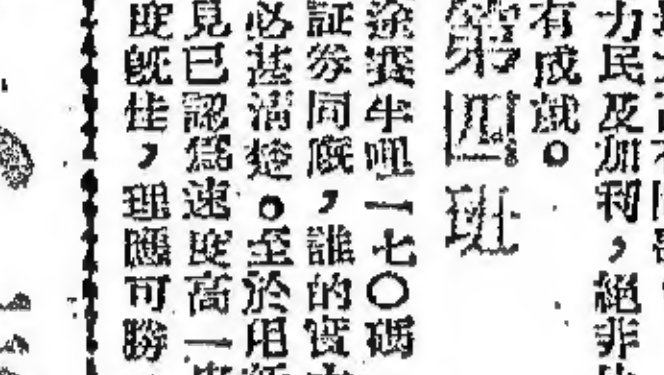 力民及加利，絕非
有成就。
第四班
途賽半哩一七〇碼
証券同廐，誰的實
必甚清楚。至於甩
見已認爲速度高一
度旣佳，理應可勝